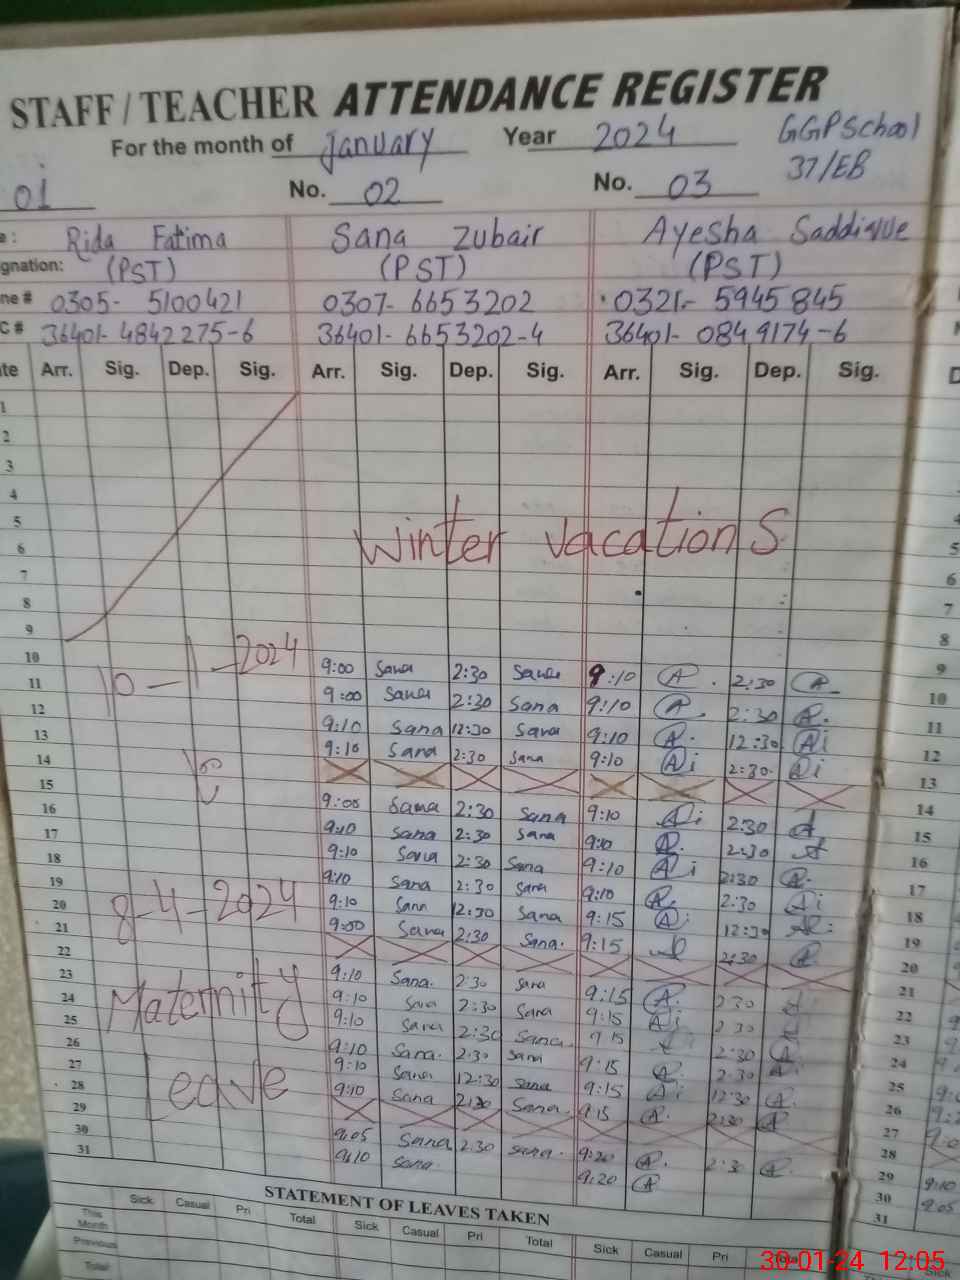 STAFF / TEACHER ATTENDANCE REGISTER
For the month of January Year 2024 GGPSchool
01 No. 02 No. 03 37/EB
Rida Fatima Sana Zubair Ayesha Saddique
gnation: (PST) (PST) (PST)
ne # 0305-5100421 0307-6653202 0321-5945845
C # 36401-4842275-6 36401-6653202-4 36401-0849174-6
te Arr. Sig. Dep. Sig. Arr. Sig. Dep. Sig. Arr. Sig. Dep. Sig.
1
2
3
4
5 Winter vacations
6
7
8
9
10 10-1-2024 9:00 Sana 2:30 Sana 9:10 A 2:30 A
11 9:00 Sana 2:30 Sana 9:10 A 2:30 A
12 9:10 Sana 12:30 Sana 9:10 A 12:30 A
13 9:10 Sana 2:30 Sana 9:10 A 2:30 A
14 To
15 9:00 Sana 2:30 Sana 9:10 A 2:30 A
16 9:10 Sana 2:30 Sana 9:10 A 2:30 A
17 9:10 Sana 2:30 Sana 9:10 A 2:30 A
18 9:10 Sana 2:30 Sana 9:10 A 2:30 A
19 8-4-2024 9:10 Sana 12:30 Sana 9:15 A 12:30
20 9:00 Sana 2:30 Sana. 9:15 2:30 A
21
22 9:10 Sana. 2:30 Sana 9:15 A 2:30
23 Maternity 9:10 Sana 2:30 Sana 9:15 A 2:30
24 9:10 Sana 2:30 Sana. 9:15 2:30 A
25 9:10 Sana. 2:30 Sana 9:15 A 2:30 A
26 Leave 9:10 Sana 12:30 Sana 9:15 A 12:30 A
27 9:10 Sana 2:30 Sana. 9:15 A 2:30 A
28
29 9:05 Sana 2:30 Sana. 9:20 A 2:30 A
30 9:10 Sana. 9:20 A
31
STATEMENT OF LEAVES TAKEN
Sick Casual Pri Total Sick Casual Pri Total Sick Casual Pri Total
This Month
Previous
Total
30-01-24 12:05